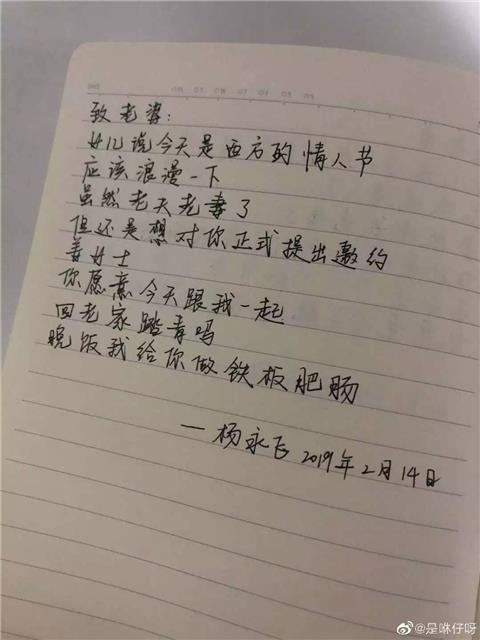 致老婆：
女儿说今天是西方的情人节
应该浪漫一下
虽然老夫老妻了
但还是想对你正式提出邀约
姜女士
你愿意今天跟我一起
回老家踏青吗
晚饭我给你做铁板肥肠
—杨永飞 2019年2月14日
@是咻仔呀